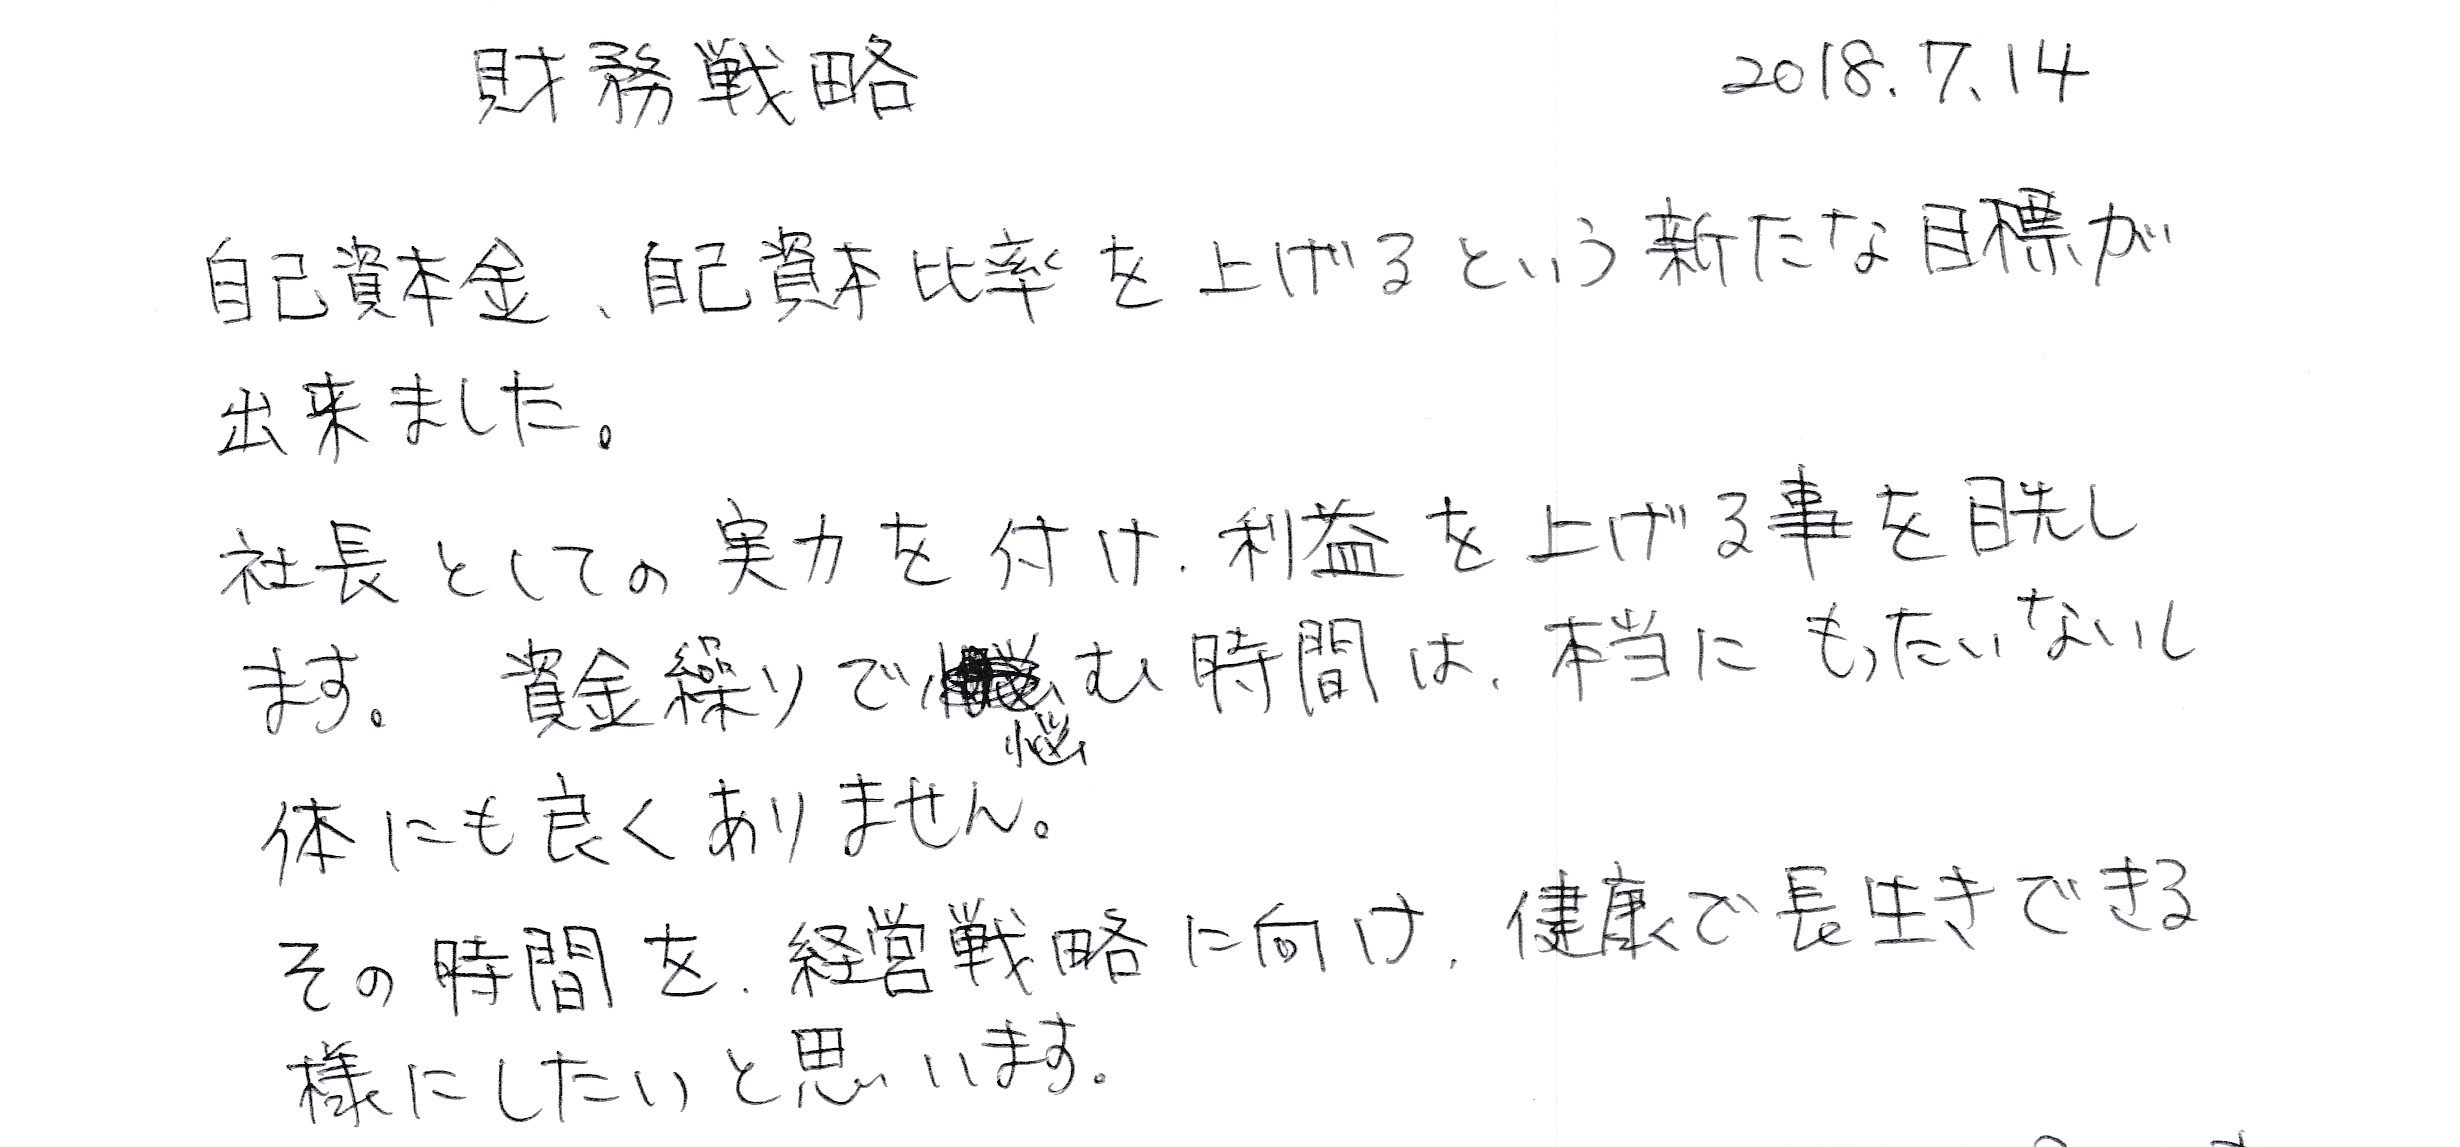 財務戦略 2018.7.14
自己資本金、自己資本比率を上げるという新たな目標が
出来ました。
社長としての実力を付け、利益を上げる事を目先し
ます。 資金繰りで悩む時間は、本当にもったいないし
体にも良くありません。
その時間を、経営戦略に向け、健康で長生きできる
様にしたいと思います。